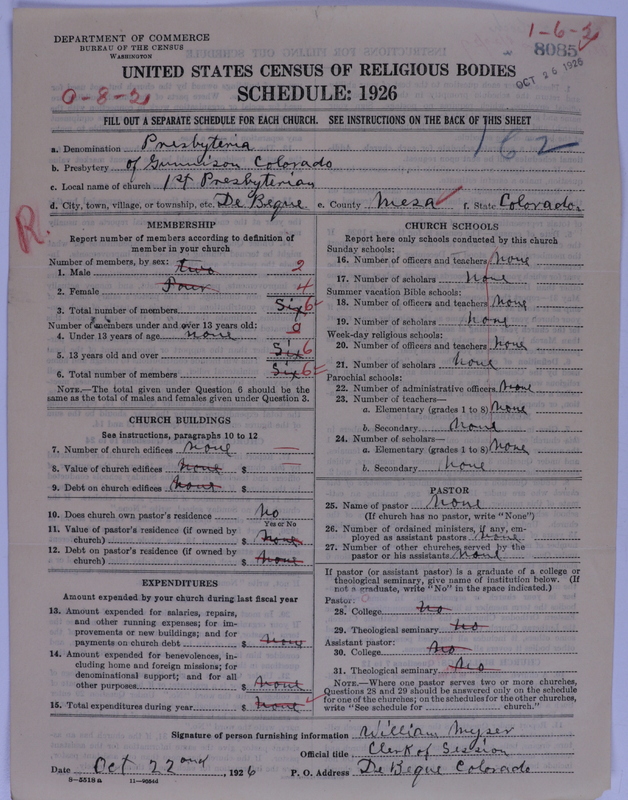 DEPARTMENT OF COMMERCE
BUREAU OF THE CENSUS
WASHINGTON
1-6-2
8085
OCT 26 1926
UNITED STATES CENSUS OF RELIGIOUS BODIES
0-8-2
SCHEDULE: 1926
FILL OUT A SEPARATE SCHEDULE FOR EACH CHURCH. SEE INSTRUCTIONS ON THE BACK OF THIS SHEET
162
a. Denomination Presbyteria
b. Presbytery of Gunnison Colorado
c. Local name of church 1st Presbyterian
d. City, town, village, or township, etc. De Beque e. County Mesa f. State Colorado
R.
MEMBERSHIP
Report number of members according to definition of member in your church
Number of members, by sex:
1. Male two 2
2. Female Four 4
3. Total number of members Six 6
Number of members under and over 13 years old:
4. Under 13 years of age none 0
5. 13 years old and over Six 6
6. Total number of members Six 6
NOTE.—The total given under Question 6 should be the
same as the total of males and females given under Question 3.
CHURCH BUILDINGS
See instructions, paragraphs 10 to 12
7. Number of church edifices none
8. Value of church edifices none $
9. Debt on church edifices none $
10. Does church own pastor's residence No
Yes or No
11. Value of pastor's residence (if owned by
church) $ none
12. Debt on pastor's residence (if owned by
church) $ none
EXPENDITURES
Amount expended by your church during last fiscal year
13. Amount expended for salaries, repairs,
and other running expenses; for im-
provements or new buildings; and for
payments on church debt $ none
14. Amount expended for benevolences, in-
cluding home and foreign missions; for
denominational support; and for all
other purposes $ none
15. Total expenditures during year $ none
CHURCH SCHOOLS
Report here only schools conducted by this church
Sunday schools:
16. Number of officers and teachers none
17. Number of scholars none
Summer vacation Bible schools:
18. Number of officers and teachers none
19. Number of scholars none
Week-day religious schools:
20. Number of officers and teachers none
21. Number of scholars none
Parochial schools:
22. Number of administrative officers none
23. Number of teachers—
a. Elementary (grades 1 to 8) none
b. Secondary none
24. Number of scholars—
a. Elementary (grades 1 to 8) none
b. Secondary none
PASTOR
25. Name of pastor none
(If church has no pastor, write "None")
26. Number of ordained ministers, if any, em-
ployed as assistant pastors none
27. Number of other churches served by the
pastor or his assistants none
If pastor (or assistant pastor) is a graduate of a college or
theological seminary, give name of institution below. (If
not a graduate, write "No" in the space indicated.)
Pastor: 0
28. College no
29. Theological seminary no
Assistant pastor:
30. College no
31. Theological seminary No
NOTE.—Where one pastor serves two or more churches,
Questions 28 and 29 should be answered only on the schedule
for one of the churches; on the schedules for the other churches,
write "See schedule for church."
Signature of person furnishing information William Myser
Official title Clerk of Session
Date Oct 22nd, 1926 P. O. Address De Beque Colorado
8-5518a 11-9554